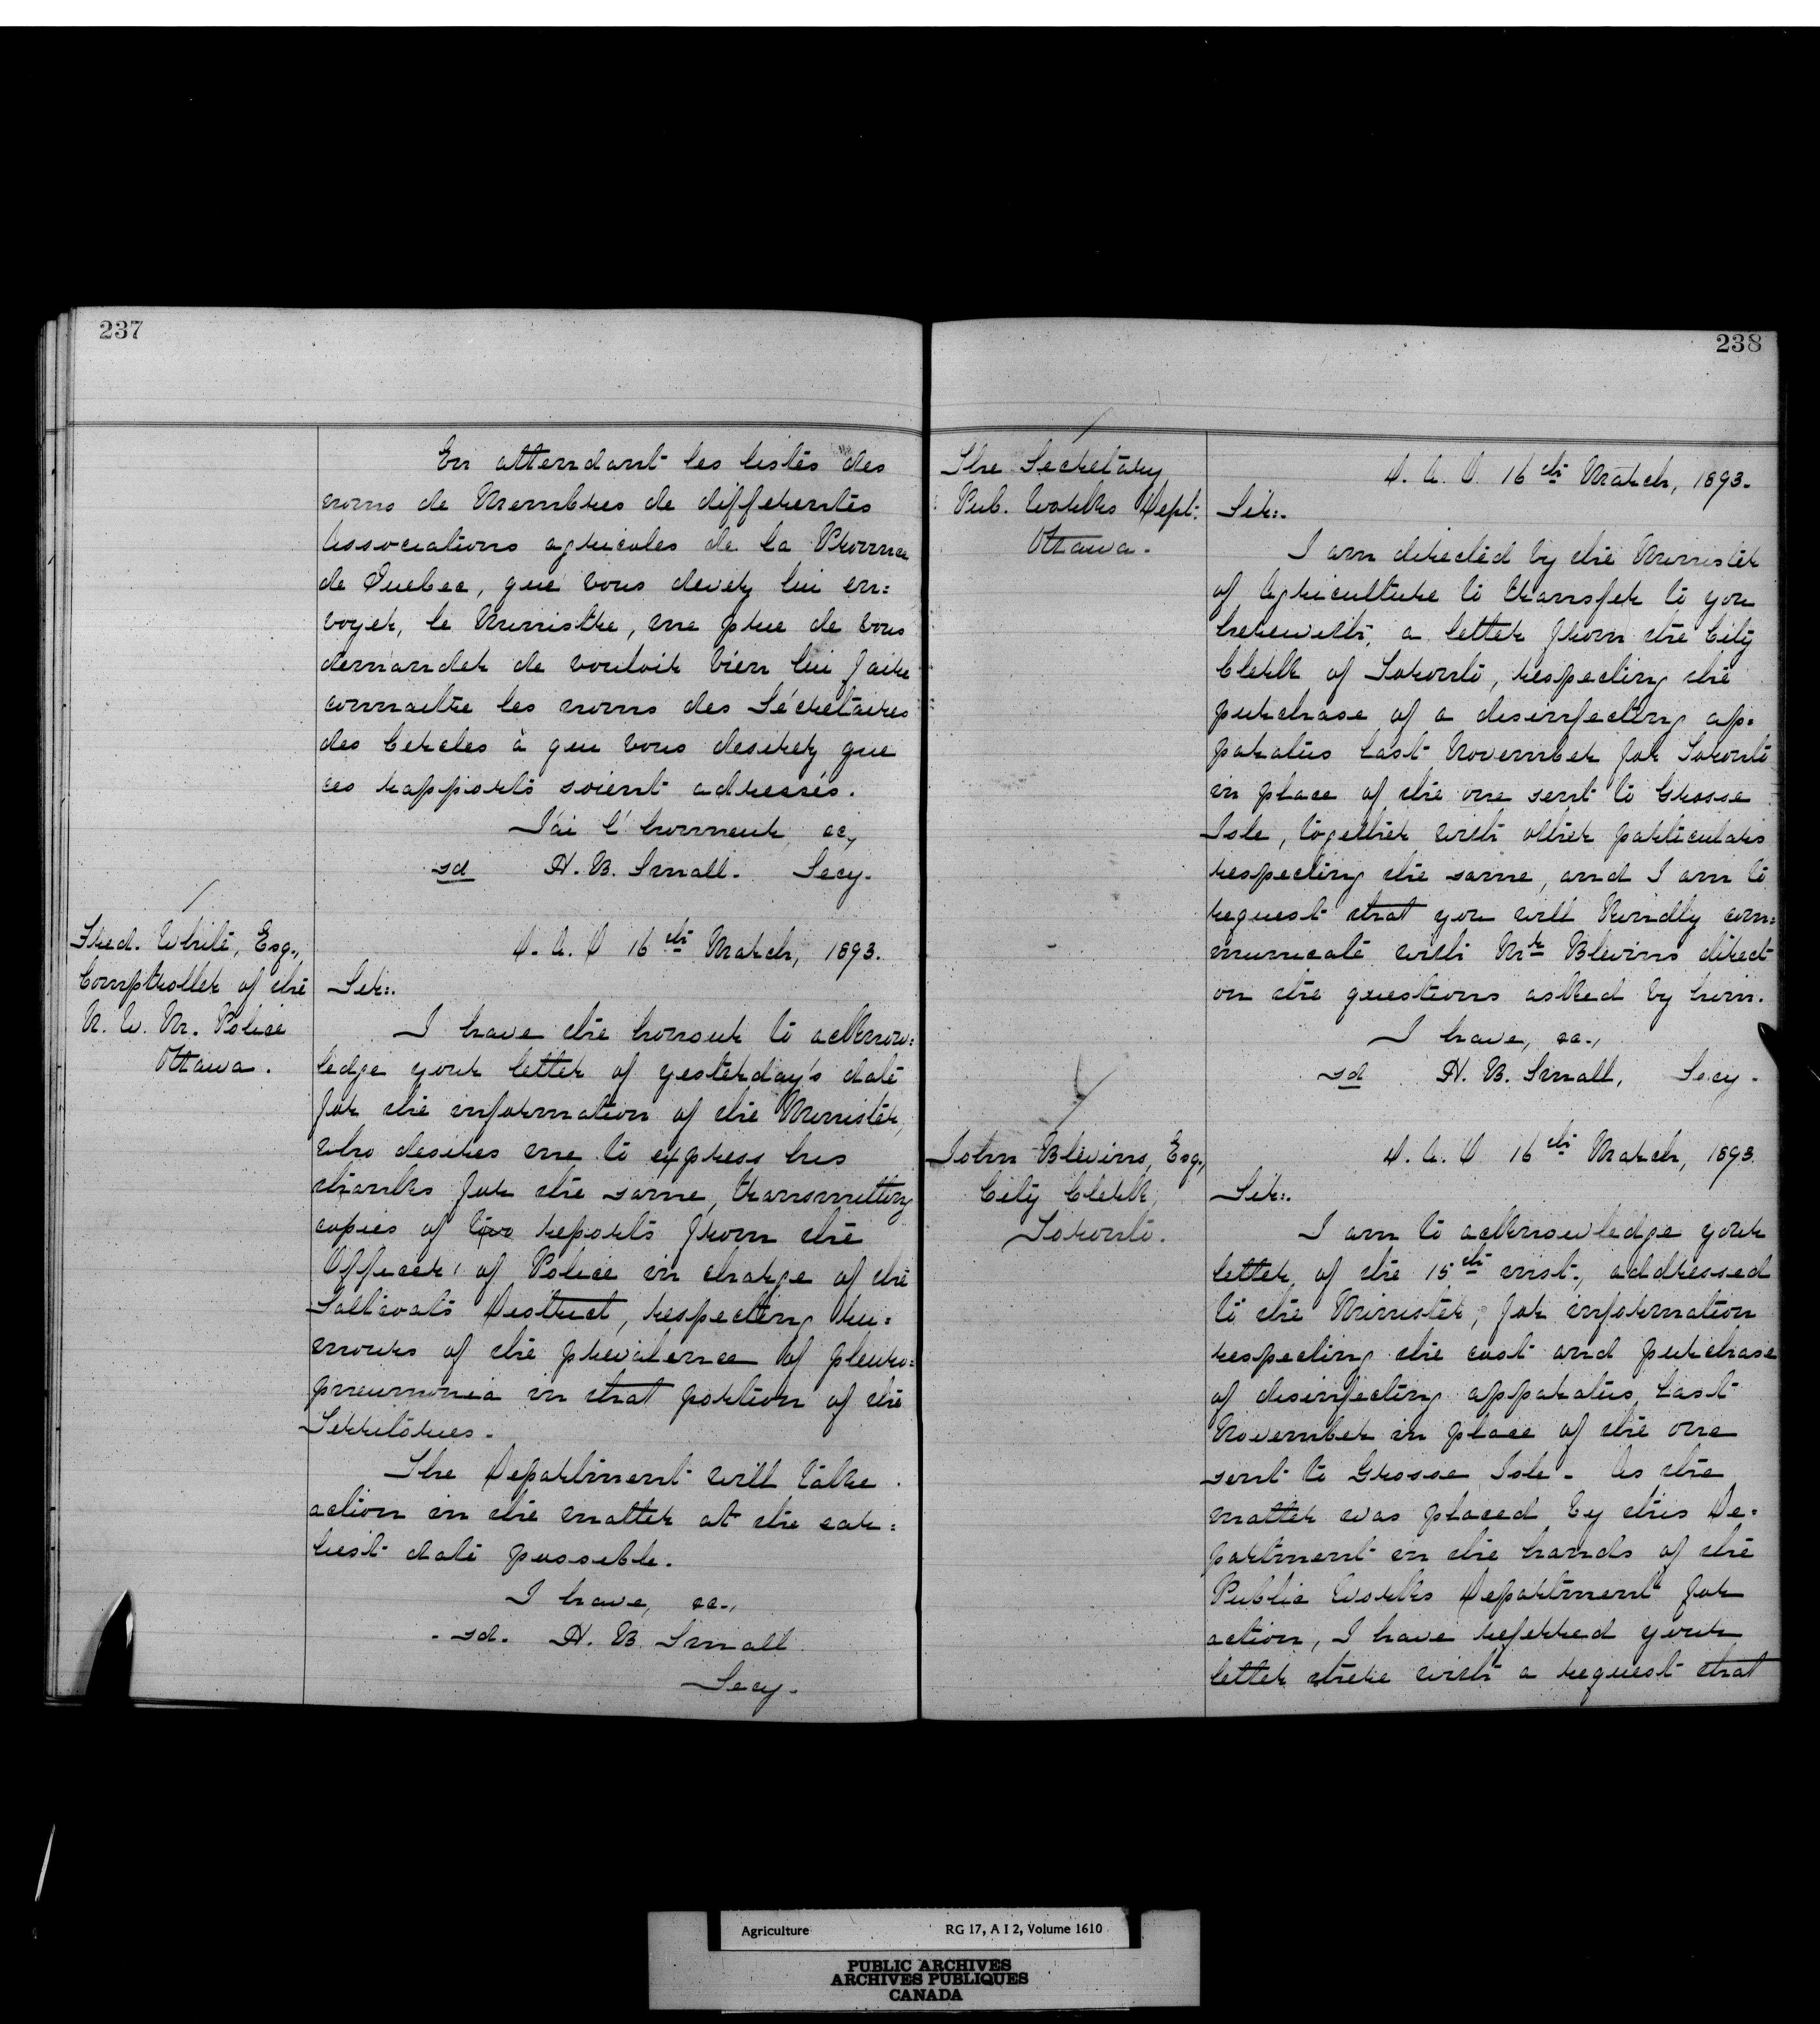 237
En attendant les listes des
noms de Membres de differentes
Associations agricoles de la Province
de Quebec, que vous devez lui en=
voyer, le Ministre, me prie de vous
demander de vouloir bien lui faire
connaitre les noms des Sécretaires
des Cercles à qui vous desirez que
ces rapports soient adressés.
J'ai l'honneur &c,
sd H. B. Small. Secy.
Fred. White, Esq.,
Comptroller of the
N. W. M. Police
Ottawa.
D. A. O 16th March, 1893.
Sir:.
I have the honour to acknow=
ledge your letter of yesterday's date
for the information of the Minister,
who desires me to express his
thanks for the same, transmitting
copies of two reports from the
Officer of Police in charge of the
Saltcoats District, respecting ru=
mours of the prevalence of pleuro=
pneumonia in that portion of the
Territories.
The Department will take
action in the matter at the ear=
liest date possible.
I have, &c.,
sd. H. B. Small
Secy.
238
The Secretary
Pub. Works Dept.
Ottawa.
D. A. O 16th March, 1893.
Sir:.
I am directed by the Minister
of Agriculture to transfer to you
herewith, a letter from the City
Clerk of Toronto, respecting the
purchase of a disinfecting ap=
paratus last November for Toronto
in place of the one sent to Grosse
Isle, together with other particulars
respecting the same, and I am to
request that you will kindly com=
municate with Mr Blevins direct
on the questions asked by him.
I have, &c.,
sd H. B. Small, Secy.
John Blevins, Esq.,
City Clerk,
Toronto.
D. A. O 16th March, 1893.
Sir:.
I am to acknowledge your
letter, of the 15th inst., addressed
to the Minister, for information
respecting the cost and purchase
of disinfecting apparatus last
November in place of the one
sent to Grosse Isle. As the
matter was placed by this De=
partment in the hands of the
Public Works Department for
action, I have referred your
letter there with a request that
Agriculture RG 17, A I 2, Volume 1610
PUBLIC ARCHIVES
ARCHIVES PUBLIQUES
CANADA